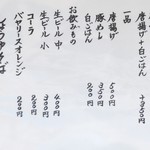 唐揚げ+白ごはん +350円
一品
唐揚げ 500円
豚めし 350円
白ごはん 200円
お飲みもの
生ビール 中 400円
生ビール 小 300円
コーラ 200円
バヤリースオレンジ 200円